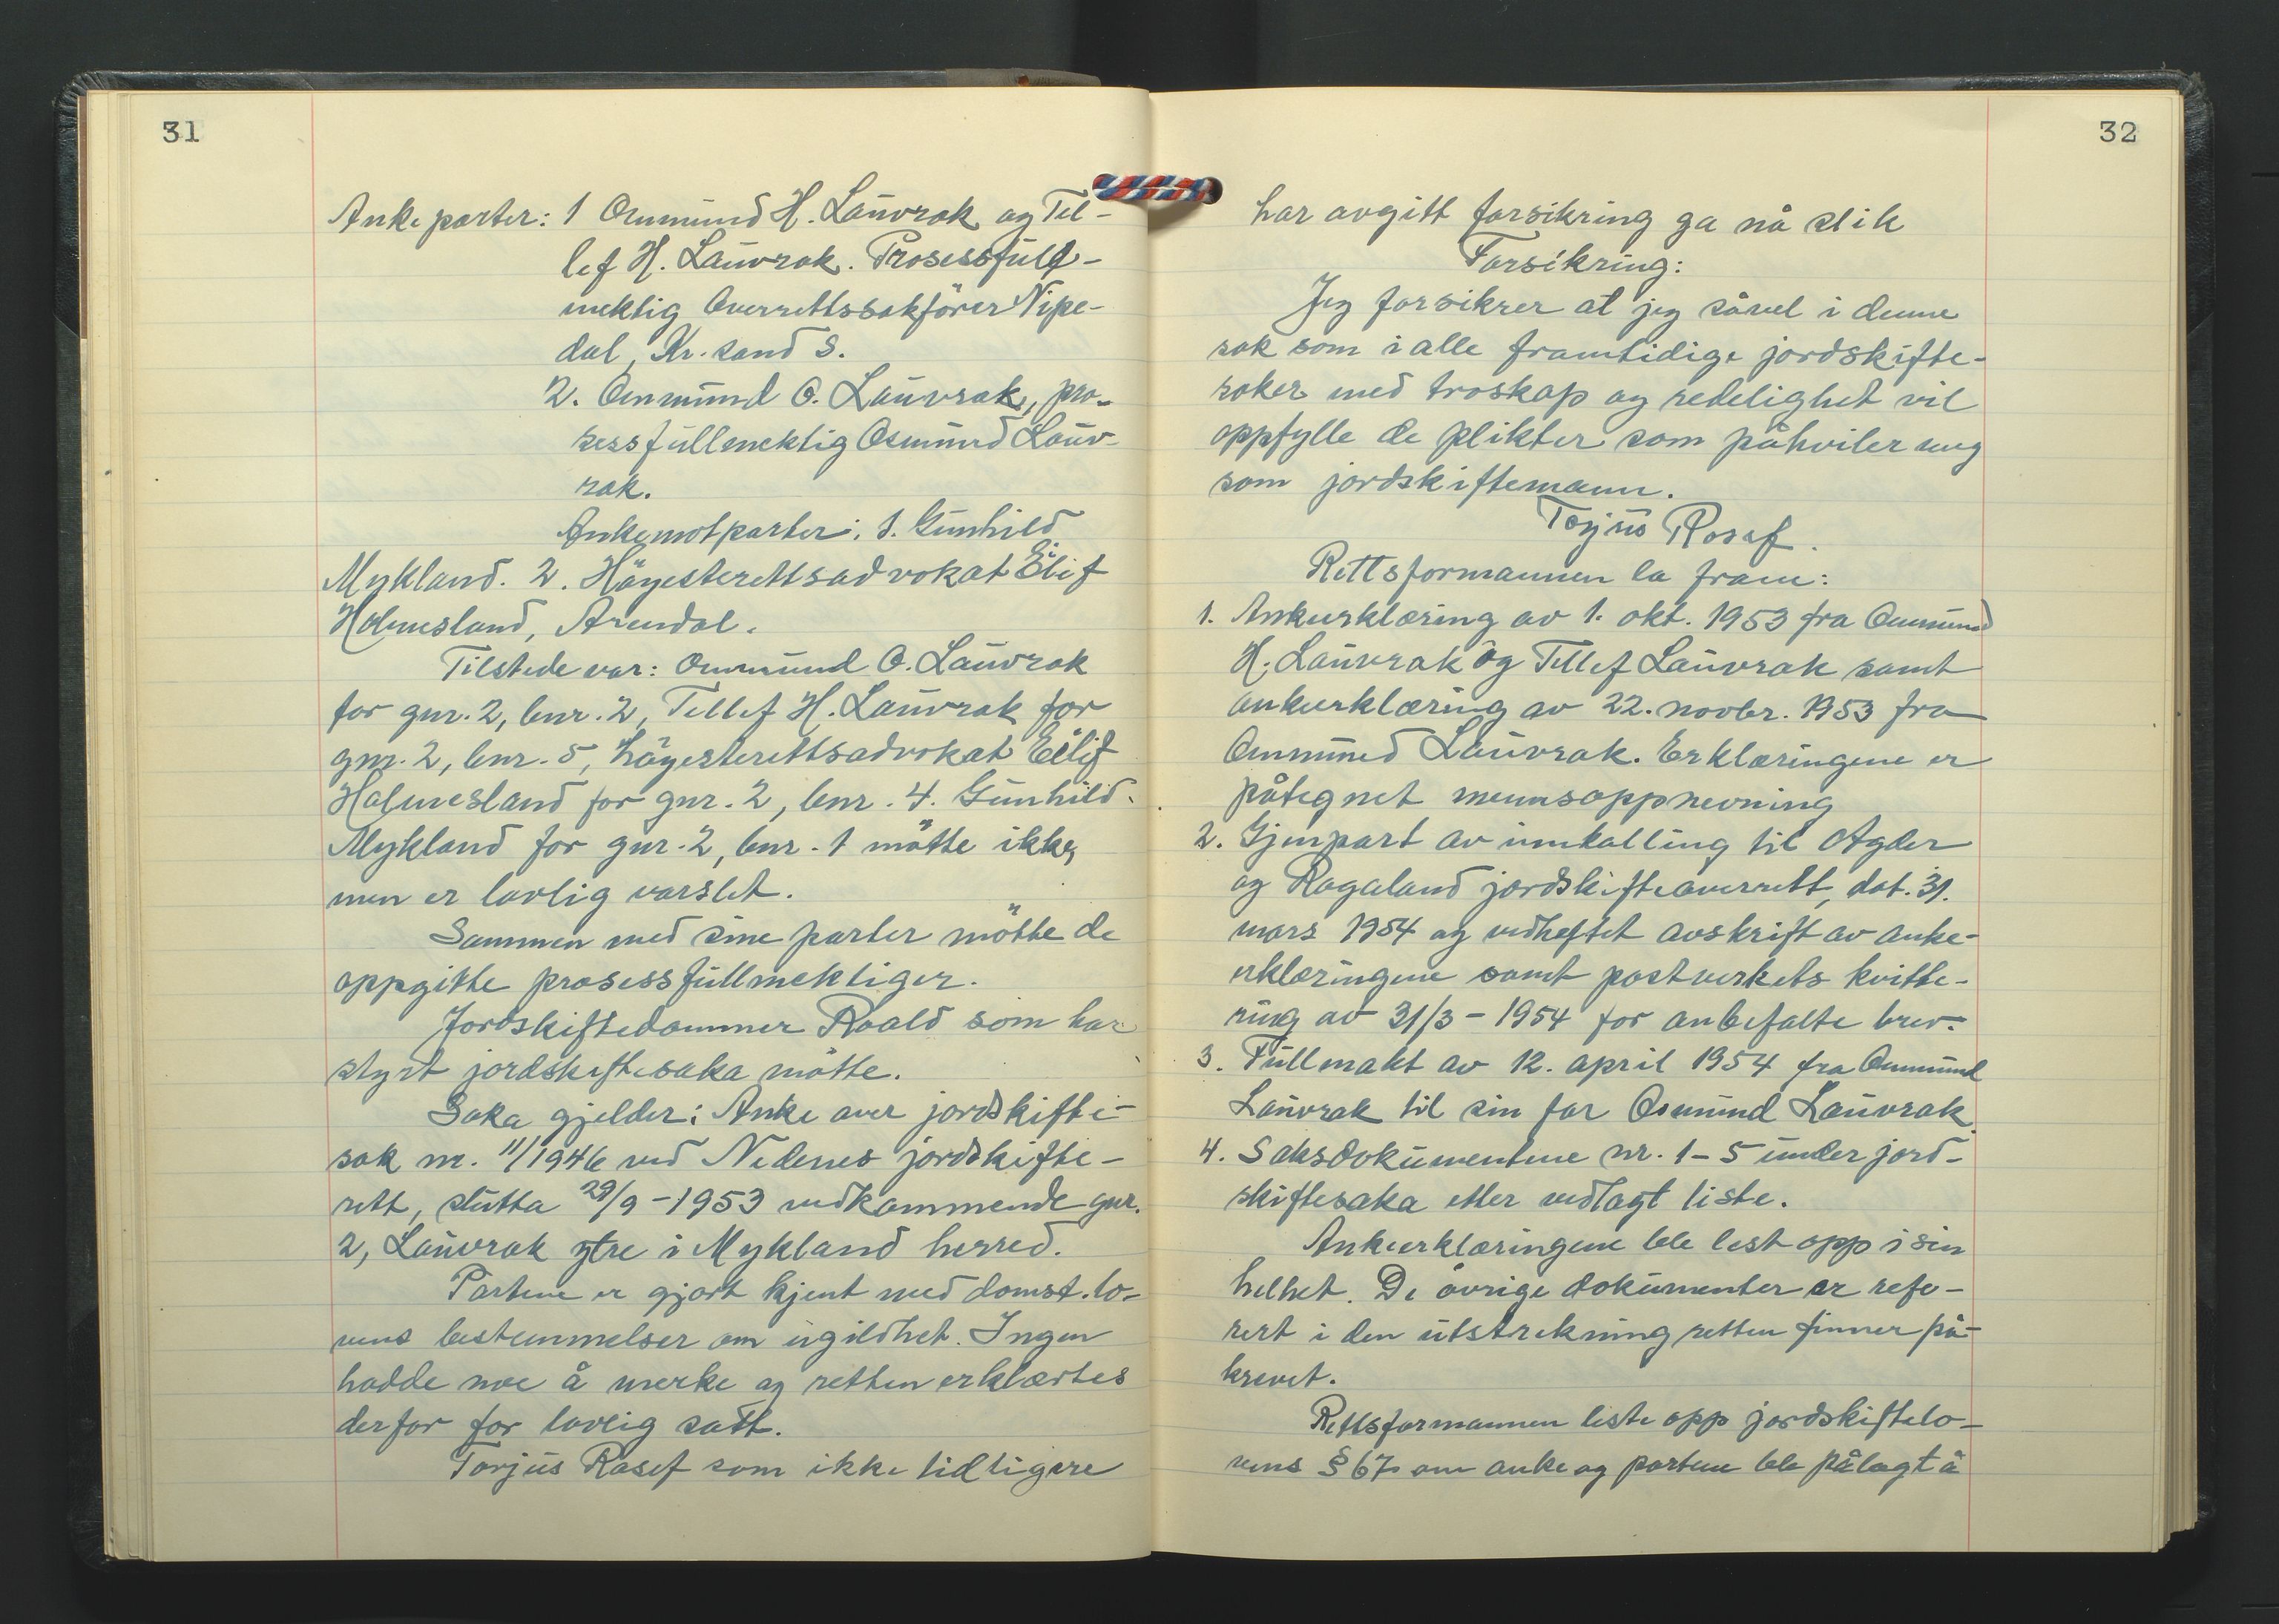 31
Ankeparter: 1 Ommund H. Lauvrak og Tel-
lef H. Lauvrak. Prosessfull-
mektig Overrettssakfører Nipe-
dal, Kr.sand S.
2. Ommund O. Lauvrak, pro-
sessfullmektig Osmund Lauv-
rak.
Ankemotparter: 1. Gunhild
Mykland. 2. Høyesterettsadvokat Eilif
Holmesland, Arendal.
Tilstede var: Ommund O. Lauvrak
for gnr. 2, bnr. 2, Tellef H. Lauvrak for
gnr. 2, bnr. 5, høyesterettsadvokat Eilif
Holmesland for gnr. 2, bnr. 4. Gunhild
Mykland for gnr. 2, bnr. 1 møtte ikke,
men er lovlig varslet.
Sammen med sine parter møtte de
oppgitte prosessfullmektiger.
Jordskiftedommer Roald som har
styrt jordskiftesaka møtte.
Saka gjelder: Anke over jordskifte-
sak nr. 11/1946 ved Nedenes jordskifte-
rett, slutta 29/9-1953 vedkommende gnr.
2, Lauvrak ytre i Mykland herred.
Partene er gjort kjent med domst.lo-
vens bestemmelser om ugildhet. Ingen
hadde noe å merke og retten erklærtes
derfor for lovlig satt.
Torjus Rosef som ikke tidligere
32
har avgitt forsikring ga nå slik
Forsikring:
Jeg forsikrer at jeg såvel i denne
sak som i alle framtidige jordskifte-
saker med troskap og redelighet vil
oppfylle de plikter som påhviler meg
som jordskiftemann.
Torjus Rosef.
Rettsformannen la fram:
1. Ankeerklæring av 1. okt. 1953 fra Ommund
H. Lauvrak og Tellef Lauvrak samt
ankeerklæring av 22. novbr. 1953 fra
Ommund Lauvrak. Erklæringene er
påtegnet mennsoppnevning
2. Gjenpart av innkalling til Agder
og Rogaland jordskifteoverrett, dat. 31.
mars 1954 og vedheftet avskrift av anke-
erklæringene samt postverkets kvitte-
ring av 31/3-1954 for anbefalte brev.
3. Fullmakt av 12. april 1954 fra Ommund
Lauvrak til sin far Osmund Lauvrak.
4. Saksdokumentene nr. 1-5 under jord-
skiftesaka etter vedlagt liste.
Ankeerklæringene ble lest opp i sin
helhet. De øvrige dokumenter er refe-
rert i den utstrekning retten finner på-
krevet.
Rettsformannen leste opp jordskiftelo-
vens § 67 om anke og partene ble pålagt å